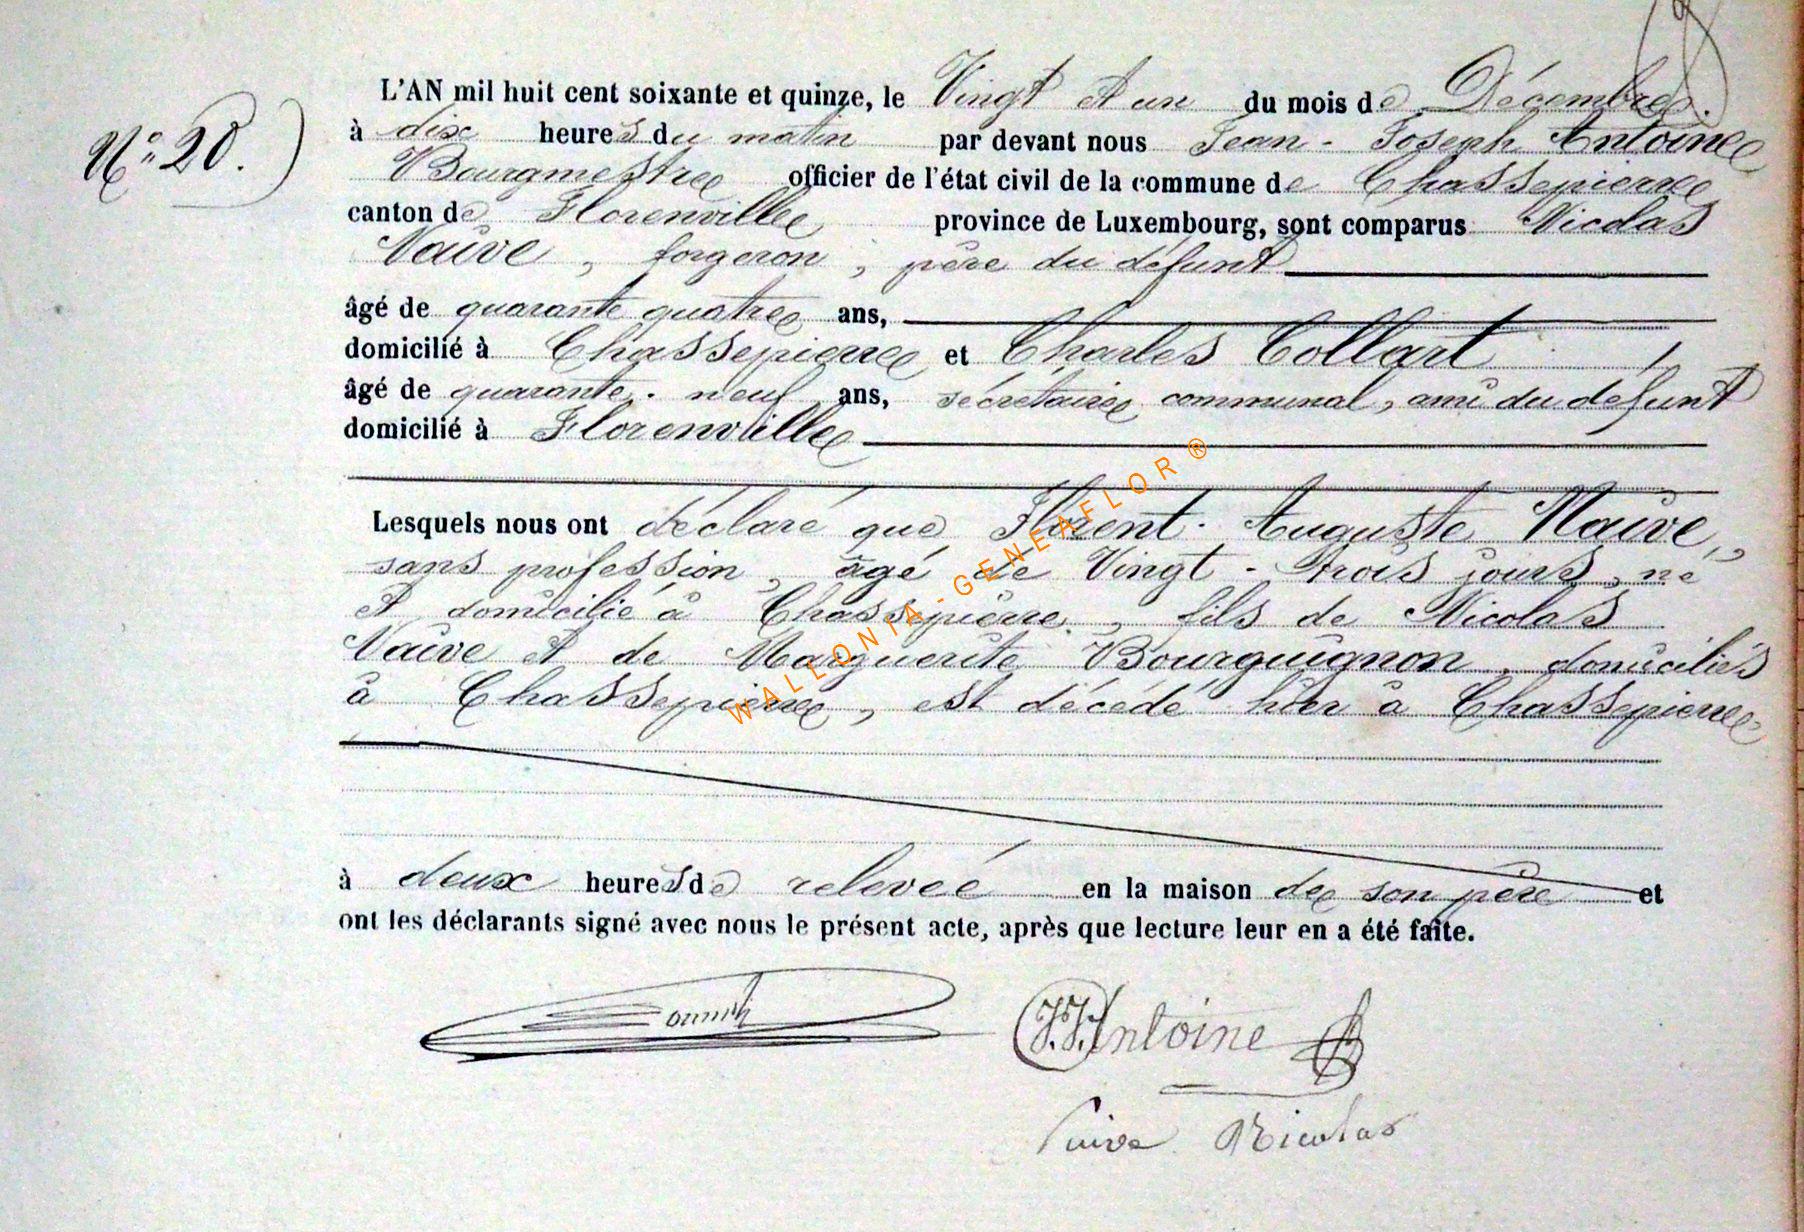 N° 20.
L'AN mil huit cent soixante et quinze, le Vingt et un du mois de Décembre.
à dix heures du matin par devant nous Jean - Joseph Antoine
Bourgmestre officier de l'état civil de la commune de Chassepierre
canton de Florenville province de Luxembourg, sont comparus Nicolas
Naive, forgeron, père du défunt
âgé de quarante quatre ans,
domicilié à Chassepierre et Charles Collart
âgé de quarante-neuf ans, secrétaire communal, ami du défunt
domicilié à Florenville
Lesquels nous ont déclaré que Florent-Auguste Naive,
sans profession, âgé de Vingt-trois jours, né
et domicilié à Chassepierre, fils de Nicolas
Naive et de Marguerite Bourguignon, domiciliés
à Chassepierre, est décédé hier à Chassepierre,
à deux heures de relevée en la maison de son père et
ont les déclarants signé avec nous le présent acte, après que lecture leur en a été faite.
J.J. Antoine
Nicolas
WALLONIA-GENEAFLOR®